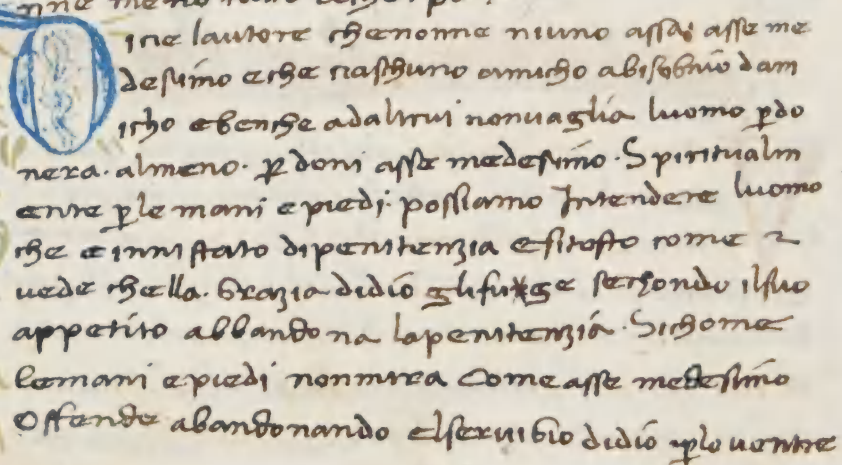 Dicie lautore chenonne niuno assai asse me
desimo e che ciaschuno amicho abisobnio dam
icho ebenche adaltrui nonvaglia luomo ꝑdo
nera. almeno. ꝑ doni asse medesimo. Spiritualm
ente ꝑle mani e piedi. possiamo Intendere luomo
che e innistato dipenitenzia esitosto come
vede chella. Grazia didio glifugge sechondo ilsuo
appetito abbandona lapenitenzia. Sichome
lemani e piedi nonmira Come asse medesimo
Offende abandonando elservibio didio ꝑlo ventre